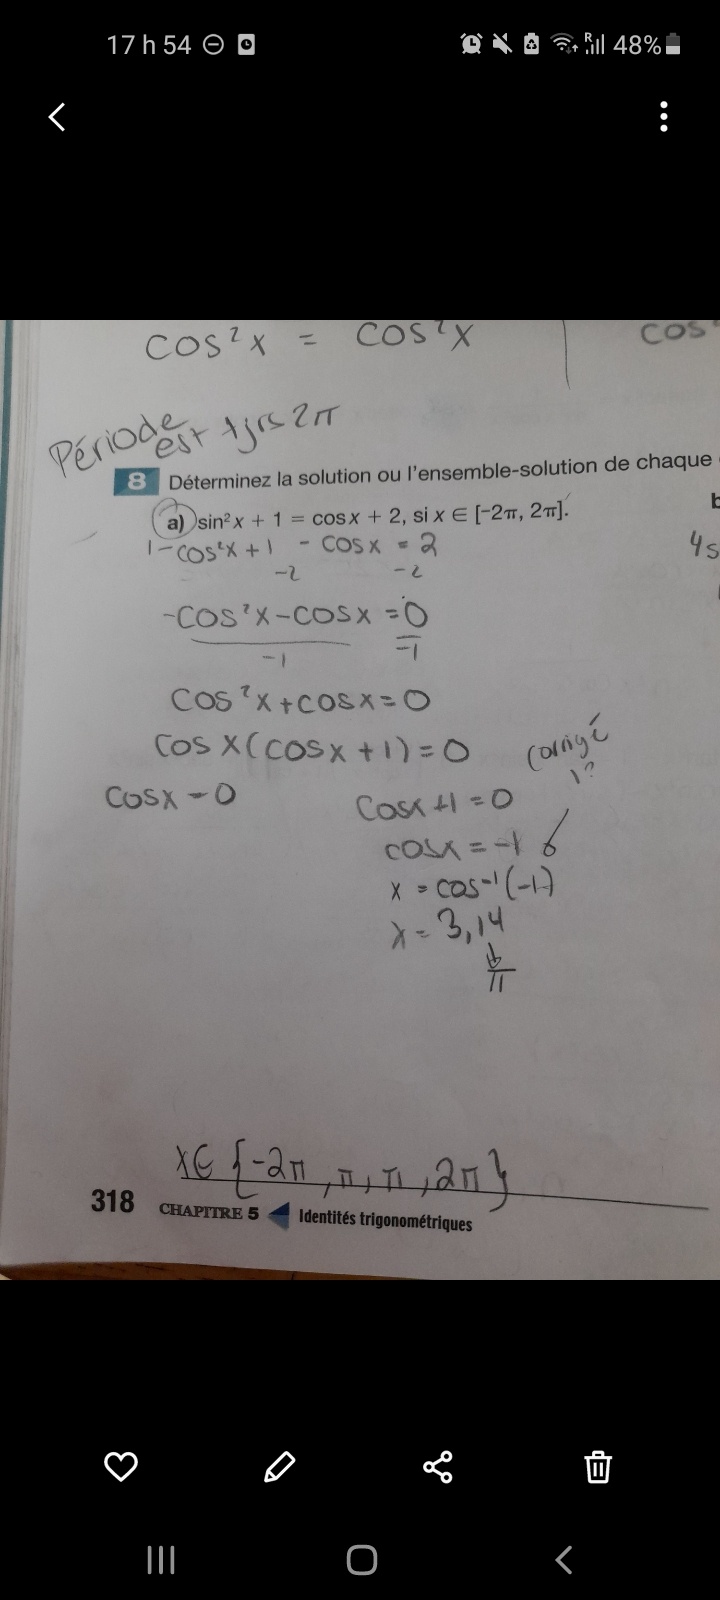 17 h 54 48%
cos²x = cos²x
cos²
Période est tjrs 2π
8 Déterminez la solution ou l'ensemble-solution de chaque
a) sin²x + 1 = cos x + 2, si x ∈ [-2π, 2π].
b
1-cos²x+1 - cosx = 2
4s
-2 -2
-cos²x-cosx = 0
-1 -1
cos²x+cosx=0
cosx(cosx+1)=0
corrigé
1?
cosx = 0
cosx+1=0
cosx = -1
x = cos⁻¹(-1)
x = 3,14
π
x∈ {-2π, π, π, 2π}
318 CHAPITRE 5 Identités trigonométriques